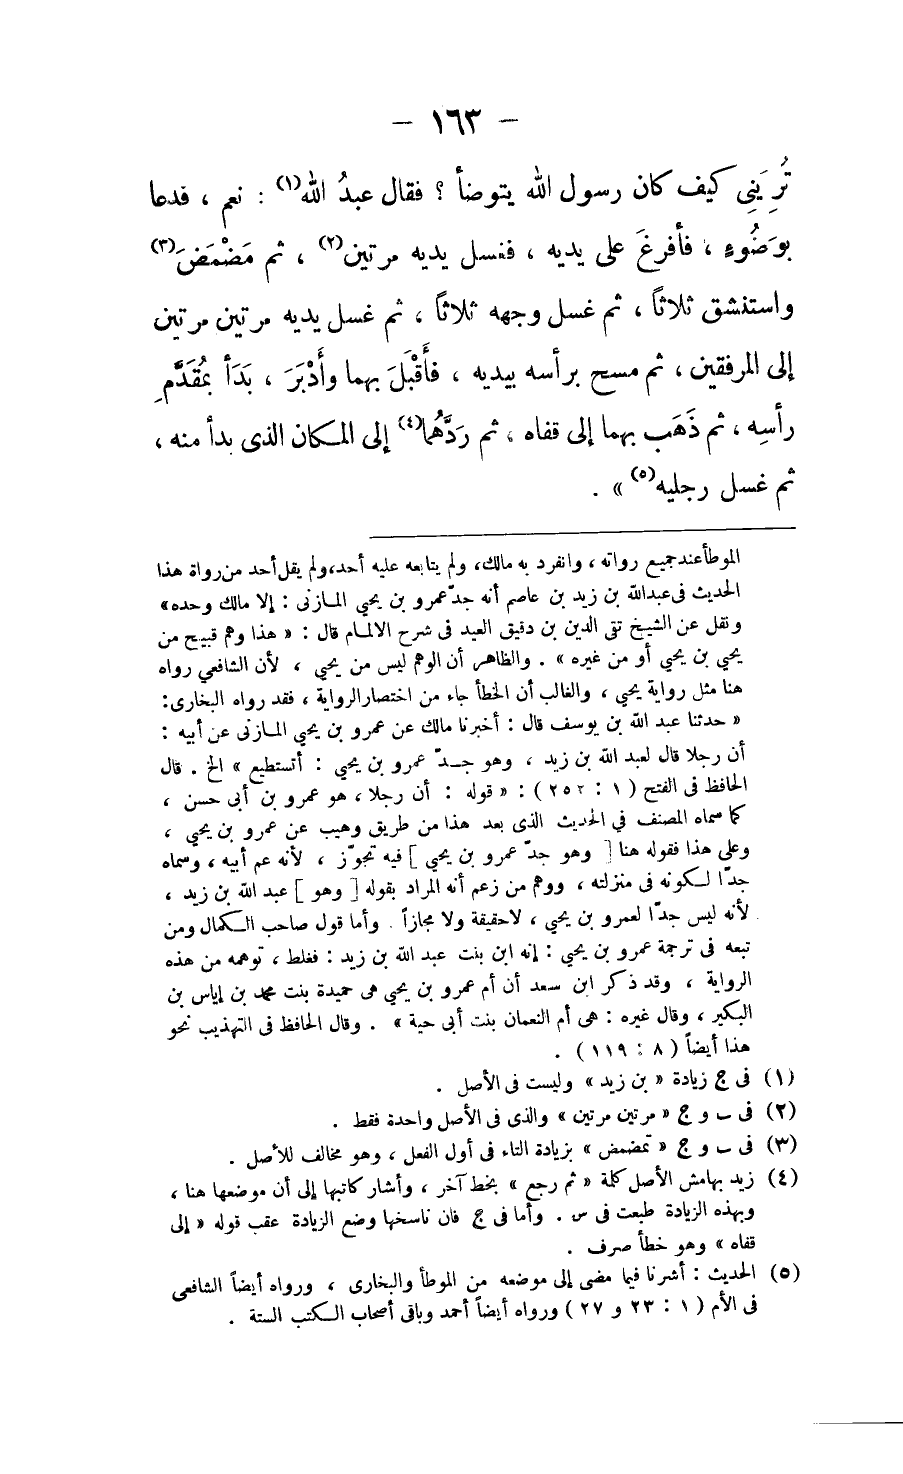 — ١٦٣ —
تُرِيَنِى كيف كان رسول الله يتوضأ ؟ فقال عبدُ الله(١) : نعم ، فدعا
بوَضُوءٍ ، فأفرغَ على يديه ، فغسل يديه مرتين(٢) ، ثم مَضْمَضَ(٣)
واستنشق ثلاثاً ، ثم غسل وجهه ثلاثاً ، ثم غسل يديه مرتين مرتين
إلى المرفقين ، ثم مسح برأسه بيديه ، فأَقْبَلَ بهما وأَدْبَرَ ، بَدَأَ بمُقَدَّمِ
رأسِه ، ثم ذَهَب بهما إلى قفاه ، ثم رَدَّهُما(٤) إلى المكان الذى بدأ منه ،
ثم غسل رجليه(٥) » .
الموطأ عند جميع رواته ، وانفرد به مالك، ولم يتابعه عليه أحد، ولم يقل أحد من رواة هذا
الحديث فى عبد الله بن زيد بن عاصم أنه جدّ عمرو بن يحيي المازنى : إلا مالك وحده»
ونقل عن الشيخ تقى الدين بن دقيق العيد فى شرح الالمام قال : « هذا وهم قبيح من
يحيي بن يحيي أو من غيره » . والظاهر أن الوهم ليس من يحيي ، لأن الشافعي رواه
هنا مثل رواية يحيي ، والغالب أن الخطأ جاء من اختصار الرواية ، فقد رواه البخارى :
« حدثنا عبد الله بن يوسف قال : أخبرنا مالك عن عمرو بن يحيي المازنى عن أبيه :
أن رجلا قال لعبد الله بن زيد ، وهو جدّ عمرو بن يحيي : أتستطيع » الخ . قال
الحافظ فى الفتح ( ١ : ٢٥٢ ) : « قوله : أن رجلا ، هو عمرو بن أبى حسن ،
كما سماه المصنف في الحديث الذى بعد هذا من طريق وهيب عن عمرو بن يحيي ،
وعلى هذا فقوله هنا [ وهو جدّ عمرو بن يحيي ] فيه تجوّز ، لأنه عم أبيه ، وسماه
جدّا لكونه فى منزلته ، ووهم من زعم أنه المراد بقوله [ وهو ] عبد الله بن زيد ،
لأنه ليس جدّا لعمرو بن يحيي ، لا حقيقة ولا مجازاً . وأما قول صاحب الكمال ومن
تبعه فى ترجمة عمرو بن يحيي : إنه ابن بنت عبد الله بن زيد : فغلط ، توهمه من هذه
الرواية ، وقد ذكر ابن سعد أن أم عمرو بن يحيي هى حميدة بنت محمد بن إياس بن
البكير ، وقال غيره : هى أم النعمان بنت أبى حية » . وقال الحافظ فى التهذيب نحو
هذا أيضاً ( ٨ : ١١٩ ) .
(١) فى ج زيادة « بن زيد » وليست فى الأصل .
(٢) فى ب و ج « مرتين مرتين » والذى فى الأصل واحدة فقط .
(٣) فى ب و ج « تمضمض » بزيادة التاء فى أول الفعل ، وهو مخالف للأصل .
(٤) زيد بهامش الأصل كلمة « ثم رجع » بخط آخر ، وأشار كاتبها إلى أن موضعها هنا ،
وبهذه الزيادة طبعت فى س . وأما فى ج فان ناسخها وضع الزيادة عقب قوله « إلى
قفاه » وهو خطأ صرف .
(٥) الحديث : أشرنا فيما مضى إلى موضعه من الموطأ والبخارى ، ورواه أيضاً الشافعى
فى الأم ( ١ : ٢٣ و ٢٧ ) ورواه أيضاً أحمد وباقى أصحاب الكتب الستة .